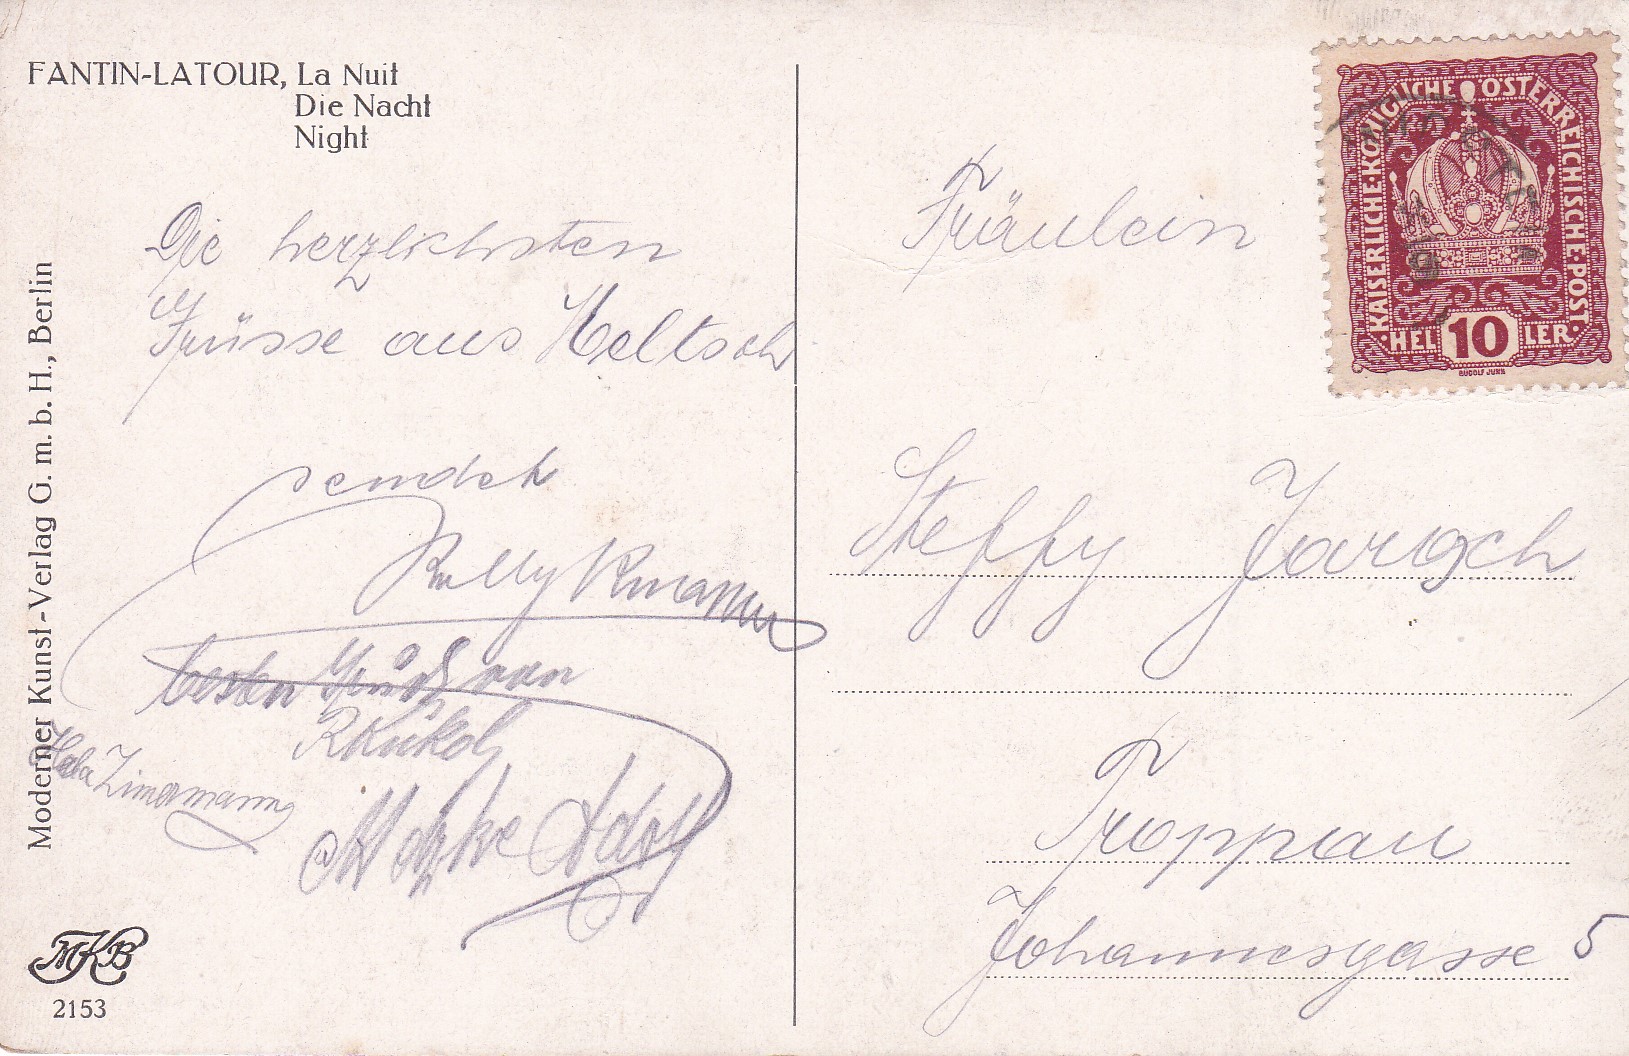 FANTIN-LATOUR, La Nuit
Die Nacht
Night
Die herzlichsten
Grüsse aus Heltsch
sendet
besten Gruß von
Hela Zimmermann
Adolf
Moderner Kunst-Verlag G. m. b. H., Berlin
MKB
2153
KAISERLICHE·KÖNIGLICHE ÖSTERREICHISCHE·POST·
·HEL 10 LER·
RUDOLF JUNK
Fräulein
Steffy Jarosch
Troppau
Johannesgasse 5